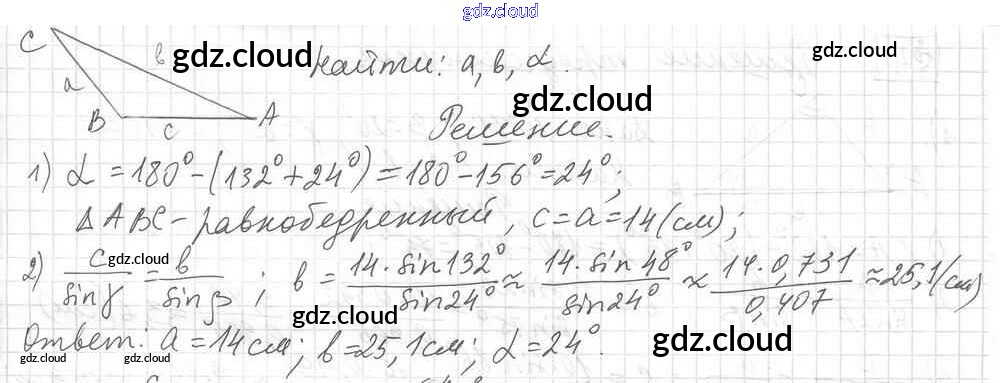 gdz.cloud
C
в gdz.cloud Найти: a, в, α.
a
gdz.cloud
B c A Решение.
1) α = 180° - (132° + 24°) = 180° - 156° = 24°;
Δ ABC - равнобедренный, c = a = 14 (см);
gdz.cloud gdz.cloud
2) c/sin γ = в/sin β; в = 14 · sin 132°/sin 24° ≈ 14 · sin 48°/sin 24° ≈ 14 · 0,731/0,407 ≈ 25,1 (см)
gdz.cloud
Ответ: a = 14 см; в = 25,1 см; α = 24°.
gdz.cloud gdz.cloud gdz.cloud